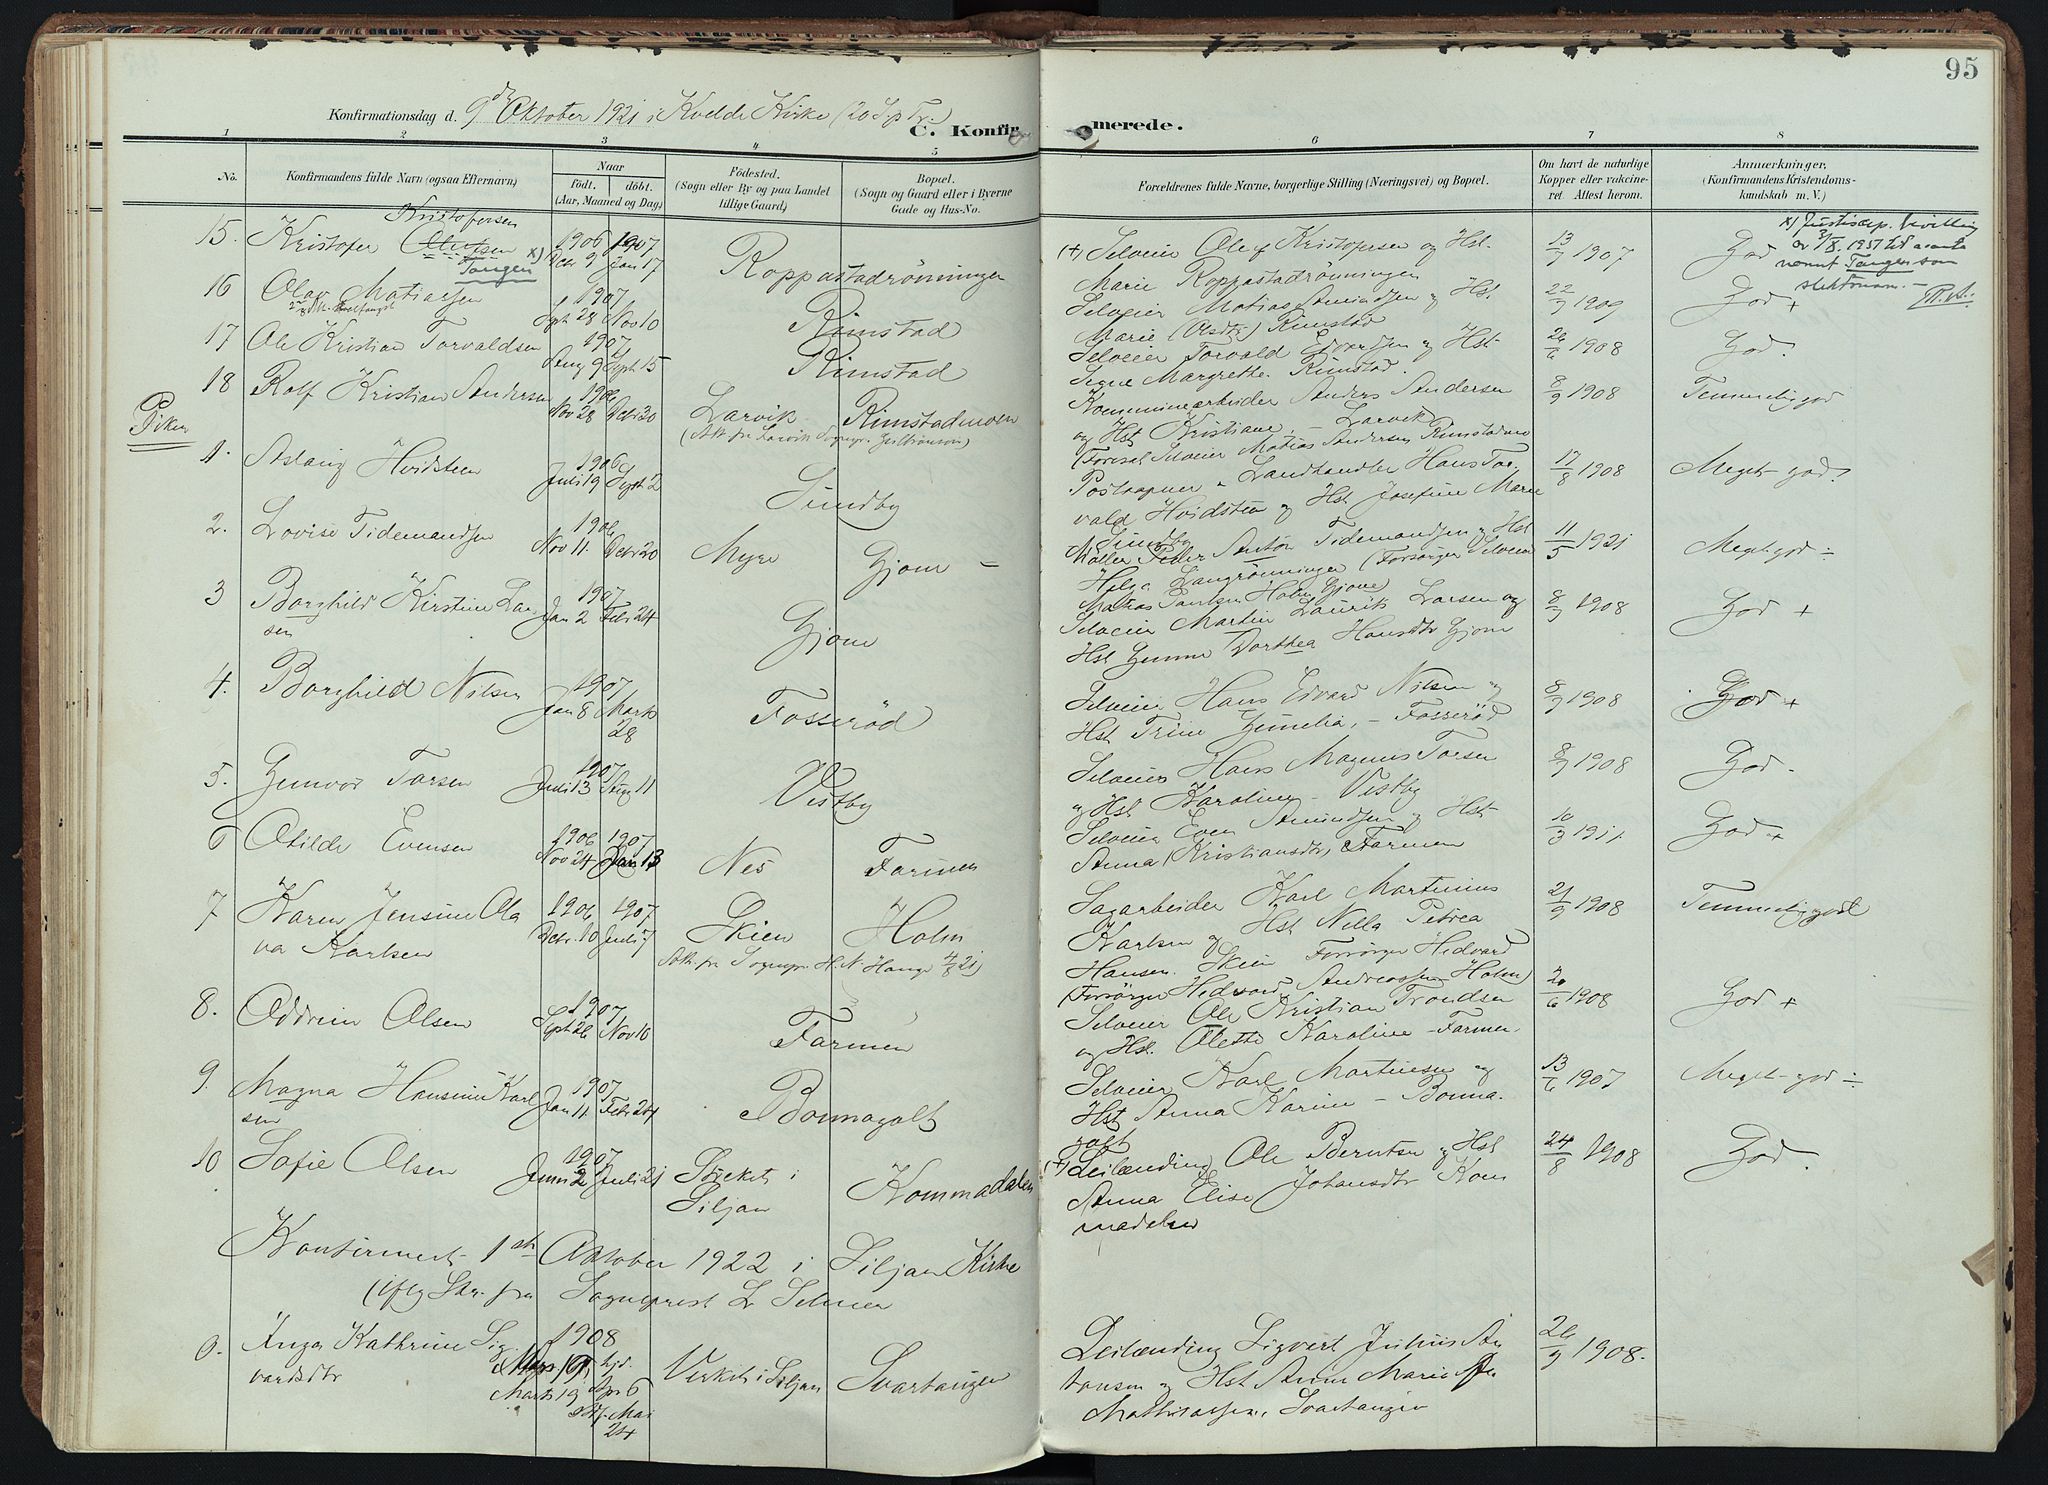 95
Konfirmationsdag d. 9de Oktober 1921 i Kvelde Kirke (20 S p Tr.)
C. Konfirmerede.
1 2 3 4 5 6 7 8
No. Konfirmandens fulde Navn (ogsaa Efternavn)
Naar
födt. döbt.
(Aar, Maaned og Dag)
Födested.
(Sogn eller By og paa Landet
tillige Gaard)
Bopæl.
(Sogn og Gaard eller i Byerne
Gade og Hus-No.
Forældrenes fulde Navne, borgerlige Stilling (Næringsvei) og Bopæl.
Om havt de naturlige
Kopper eller vakcine-
ret. Attest herom.
Anmærkninger,
(Konfirmandens Kristendoms-
kundskab m. V.)
Kristofersen
15. Kristofer Olufsen x) 1906 Dcbr 9 1907 Jan 17 Roppastadrönningen
Tangen
(+) Selveier Oluf Kristofersen og Hst.
Marie Roppestadrönningen
13/7 1907 God
x) Justisdep. bevilling
av 3/8. 1951 til a anta
navnet Tangen som
slektsnavn. –
16 Olav Matiassen 1907 Sept 28 Nov 10 Rimstad
Selveier Matias Amundsen og Hst.
Marie (Olsdtr) Rimstad
22/7 1909 God +
17 Ole Kristian Torvaldsen 1907 Aug 9 Sept 15 Rimstad
Selveier Torvald Edvardsen og Hst.
Signe Margrethe. Rimstad.
26/6 1908 God.
18 Rolf Kristian Andersen 1906 Nov 28 Dcbr 30 Larvik Rimstadmoen
(Att. fra Larvik Sognepr. Gulbranson)
Kommunearbeider Anders Andersen
og Hst Kristiane, – Larvik
(Foresat Selveier Matias Andersen Rimstadmo
8/9 1908 Temmelig god
Piker
1. Aslaug Hvidsteen 1906 Juli 19 Sept 2 Sundby
Postaapner & Landhandler Hans Tor-
vald Hvidsteen og Hst Josefine Marie
Sundby
17/8 1908 Meget god?
2. Lovise Tidemandsen 1906 Nov 11. Dcbr 20 Myre Gjone –
Möller Peder Anton Tidemandsen og Hst
Helga Langrönningen (Forsörger Selveier
Matias Paulsen Holm Gjone)
11/5 1921 Meget god ÷
3 Borghild Kirstine Lar
sen 1907 Jan 2 Febr 24 Gjone
Selveier Martin Laurits Larsen og
Hst Gunne Dorthea Hansdtr Gjone
8/7 1908 God +
4. Borghild Nilsen 1907 Jan 8 Marts
28 Fosseröd
Selveier Hans Edvard Nilsen og
Hst Trine Gunelia, – Fosseröd
8/7 1908 God +
5. Gunvor Torsen 1907 Juli 13 Aug 11 Vestby
Selveier Hans Magnus Torsen
og Hst Karoline – Vestby
8/7 1908 God.
6 Otilde Evensen 1906 Nov 24 1907 Jan 13 Nes Farmen
Selveier Even Amundsen og Hst
Anna (Kristiansdtr) Farmen
10/3 1911 God +
7 Karen Jensine Ola
va Karlsen 1906 Dcbr. 10 1907 Juli 7 Skien Holm
Att. fra Sognepr. H. N. Hauge 4/8 21)
Sagarbeider Karl Martinius
Karlsen og Hst Nilla Petrea
Hansen. Skien Forsörger Hedvard
(Forsörger Hedvard Andreassen Holm)
21/9 1908 Temmelig god
8. Oddrun Olsen 1907 Sept 26 Nov 10 Farmen
Selveier Ole Kristian Trondsen
og Hst. Olette Karoline – Farmen.
20/6 1908 God +
9. Magna Hansine Karl
sen 1907 Jan 11 Febr 24 Bonnagolt
Selveier Karl Martinsen og
Hst Anna Karine – Bonna-
golt
13/6 1907 Meget god ÷
10 Sofie Olsen 1907 Juni 2 Juli 21 Sörket i
Siljan Kommadalen
(+) Leilænding Ole Berntsen og Hst
Anna Elise Johansdtr Kom
madalen
24/8 1908 God.
Konfirmert 1ste Oktober 1922 i Siljan Kirke
(iflg Skr. fra Sogneprest L. Selmer
0. Inga Kathrine Sig
vardsdtr 1908
Marts 19 hjd.
Apr 6
Mai
24 Virket i Siljan Svartangen
Leilænding Sigvert Julius An
tonsen og Hst Anne Marie
Mathisassen, Svartangen
26/9 1908.